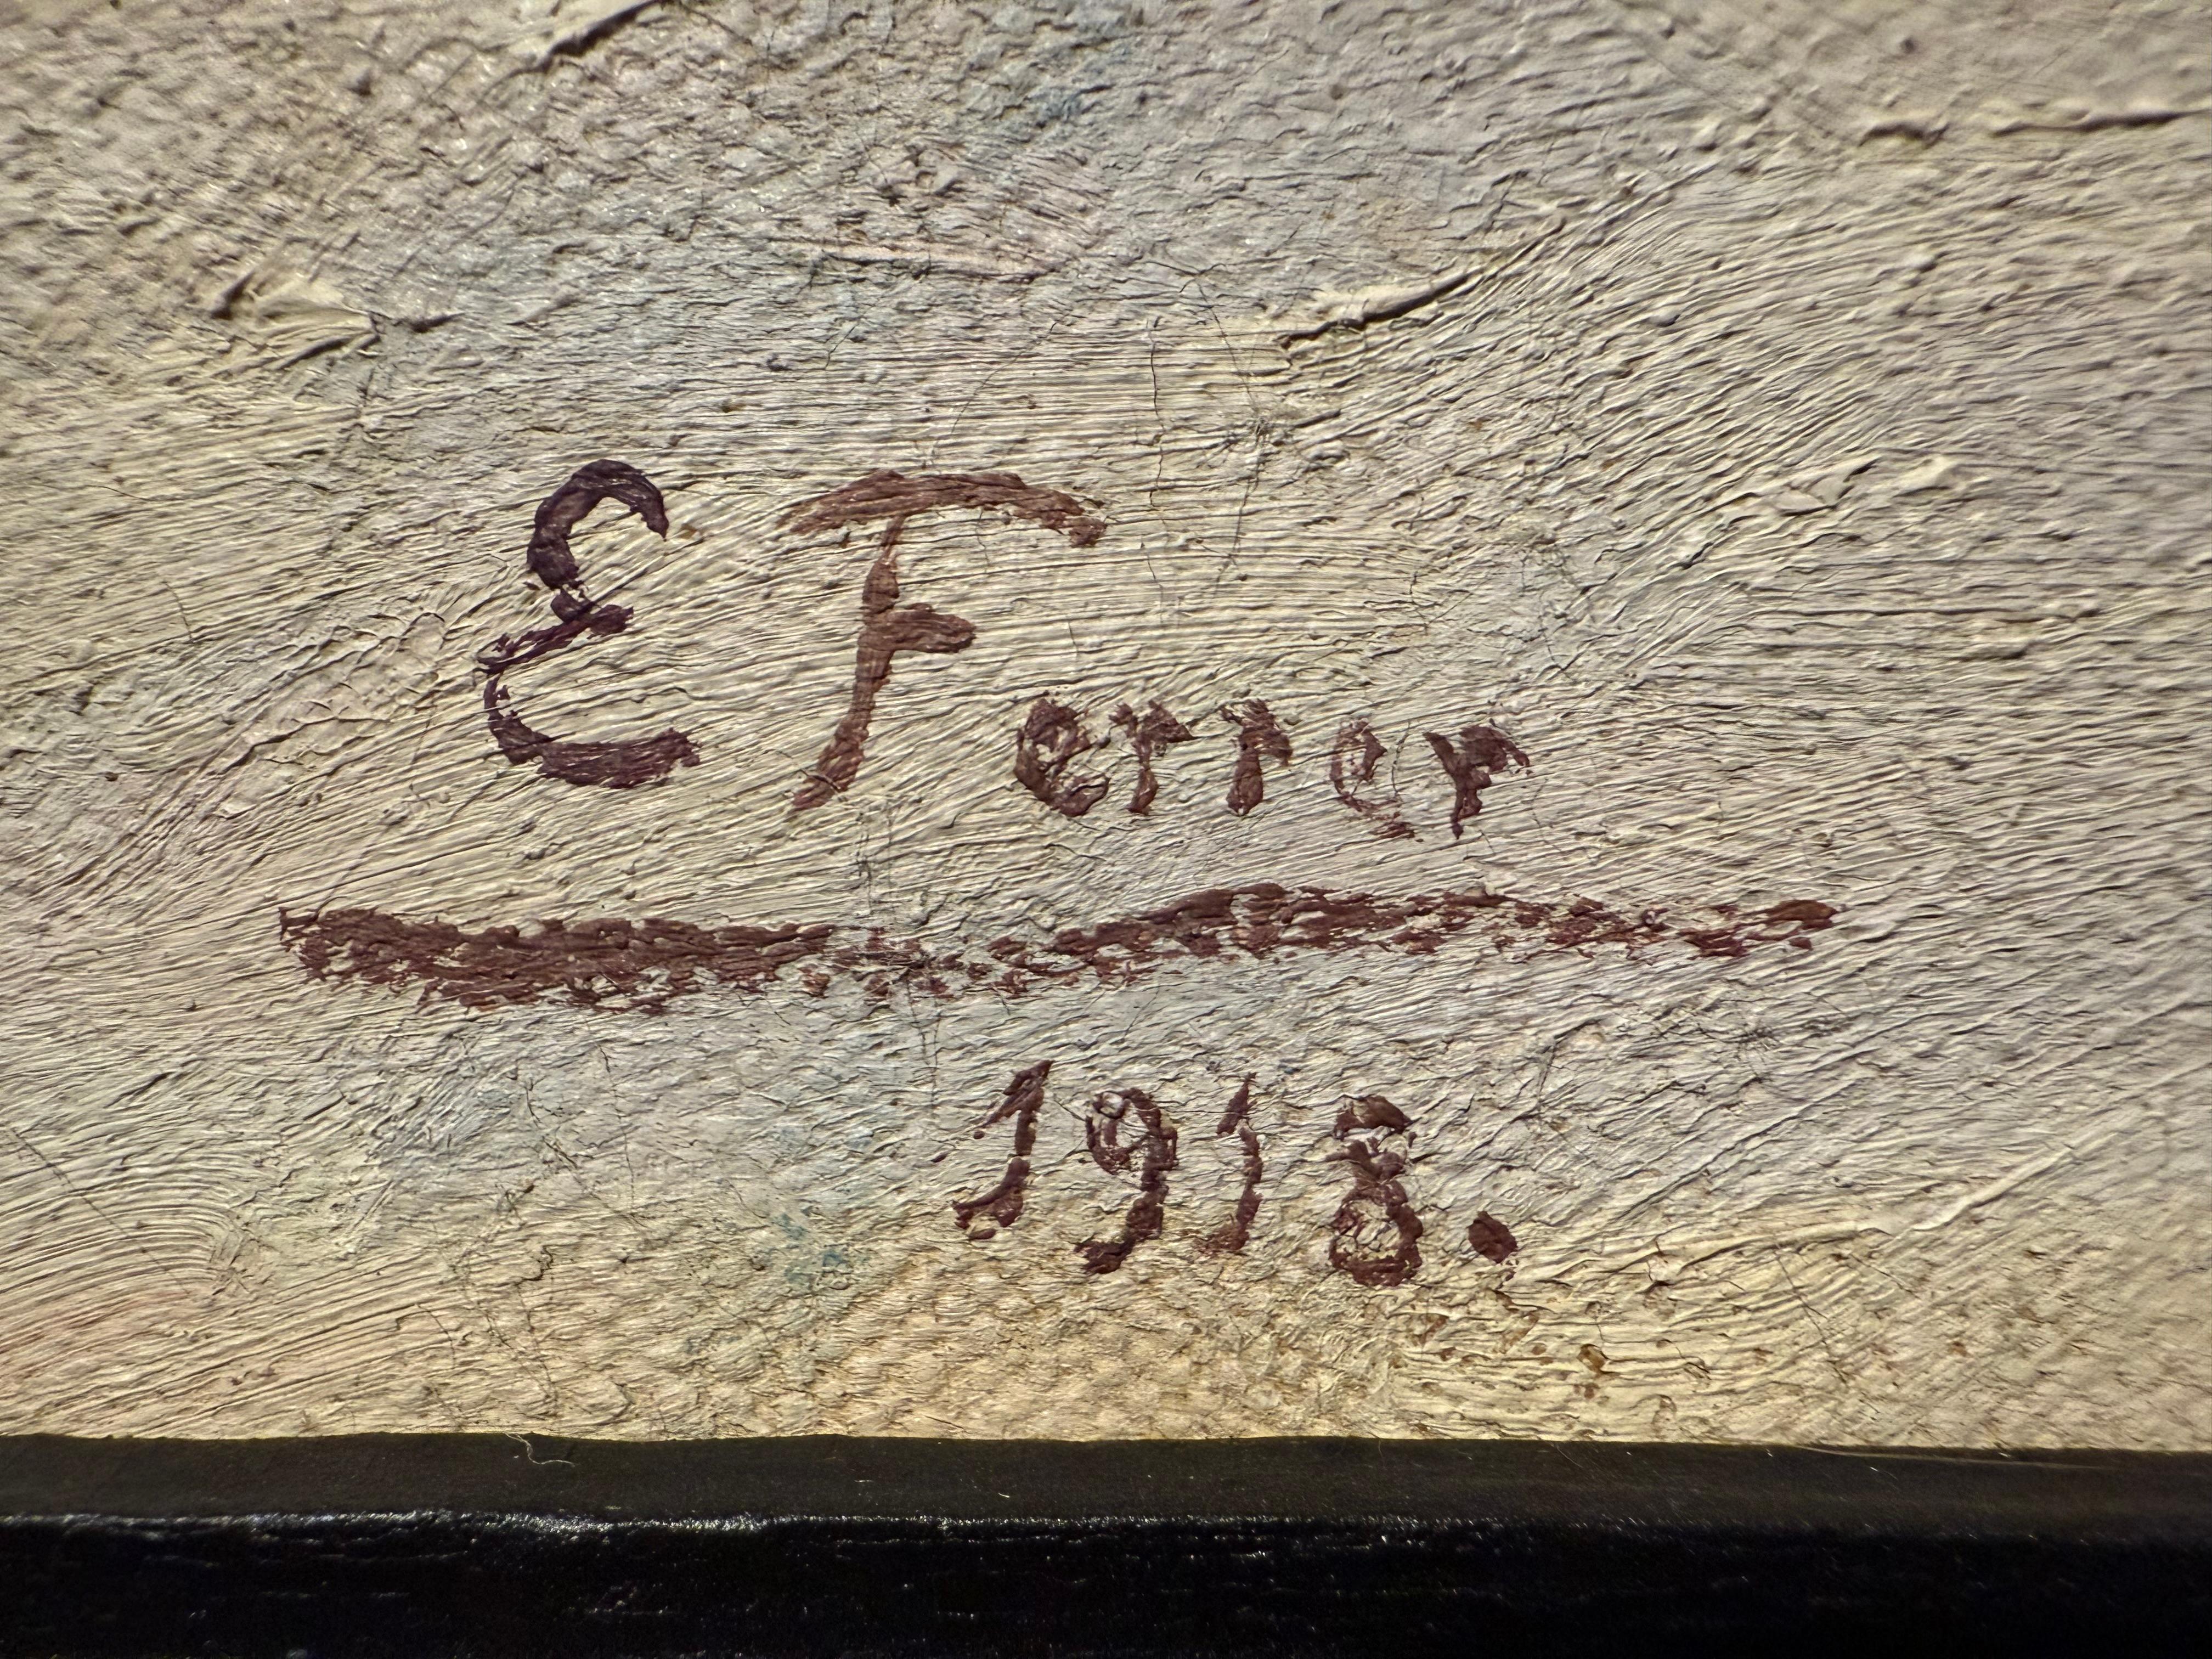 E Ferrer
1918.